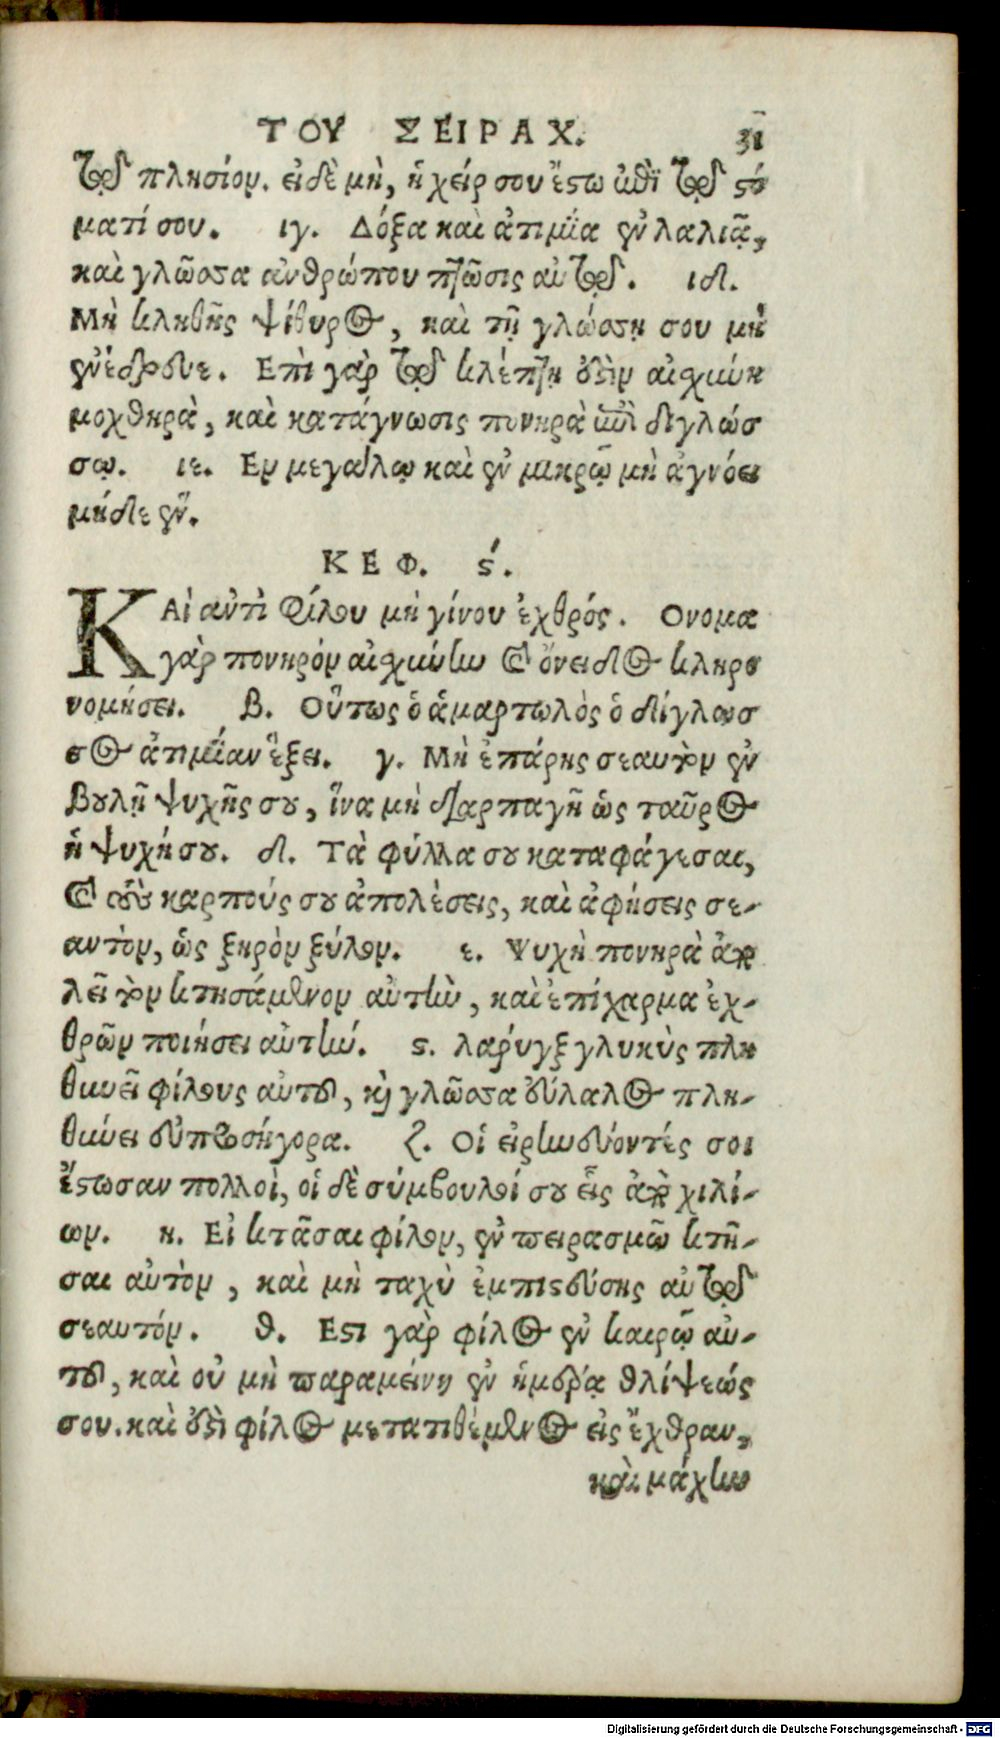 ΤΟΥ ΣΕΙΡΑΧ. 31
τῷ πλησίον. εἰ δὲ μὴ, ἡ χείρ σου ἔστω ἐπὶ τῷ στό
ματί σου. ιγ. Δόξα καὶ ἀτιμία ἐν λαλιᾷ,
καὶ γλῶσσα ἀνθρώπου πτῶσις αὐτῷ. ιδ.
Μὴ κληθῇς ψίθυρος, καὶ τῇ γλώσσῃ σου μὴ
ἐνέδρευε. Επὶ γὰρ τῷ κλέπτῃ ἐστὶν αἰσχύνη
μοχθηρὰ, καὶ κατάγνωσις πονηρὰ ἐπὶ διγλώσ
σῳ. ιε. Εν μεγάλῳ καὶ ἐν μικρῷ μὴ ἀγνόει
μήδε ἕν.
ΚΕΦ. ϛ΄.
ΚΑὶ ἀντὶ φίλου μὴ γίνου ἐχθρός. Ονομα
γὰρ πονηρὸν αἰσχύνην καὶ ὄνειδος κληρο
νομήσει. β. Οὕτως ὁ ἁμαρτωλὸς ὁ δίγλωσ
σος ἀτιμίαν ἕξει. γ. Μὴ ἐπάρῃς σεαυτὸν ἐν
βουλῇ ψυχῆς σου, ἵνα μὴ διαρπαγῇ ὡς ταῦρος
ἡ ψυχή σου. δ. Τὰ φύλλα σου καταφάγεσαι,
καὶ τοὺς καρπούς σου ἀπολέσεις, καὶ ἀφήσεις σε-
αυτὸν, ὡς ξηρὸν ξύλον. ε. Ψυχὴ πονηρὰ ἀπο
λεῖ τὸν κτησάμενον αὐτὴν, καὶ ἐπίχαρμα ἐχ-
θρῶν ποιήσει αὐτήν. ϛ. λαρύγξ γλυκὺς πλη
θυνεῖ φίλους αὐτοῦ, καὶ γλῶσσα εὔλαλος πλη-
θύνει εὐπροσήγορα. ζ. Οἱ εἰρηνεύοντές σοι
ἔστωσαν πολλοὶ, οἱ δὲ σύμβουλοί σου εἷς ἀπὸ χιλί-
ων. η. Εἰ κτᾶσαι φίλον, ἐν πειρασμῷ κτῆ-
σαι αὐτὸν, καὶ μὴ ταχὺ ἐμπιστεύσῃς αὐτῷ
σεαυτόν. θ. Εστι γὰρ φίλος ἐν καιρῷ αὐ-
τοῦ, καὶ οὐ μὴ παραμείνῃ ἐν ἡμέρᾳ θλίψεώς
σου. καὶ ἐστὶ φίλος μετατιθέμενος εἰς ἔχθραν,
καὶ μάχην
Digitalisierung gefördert durch die Deutsche Forschungsgemeinschaft - DFG